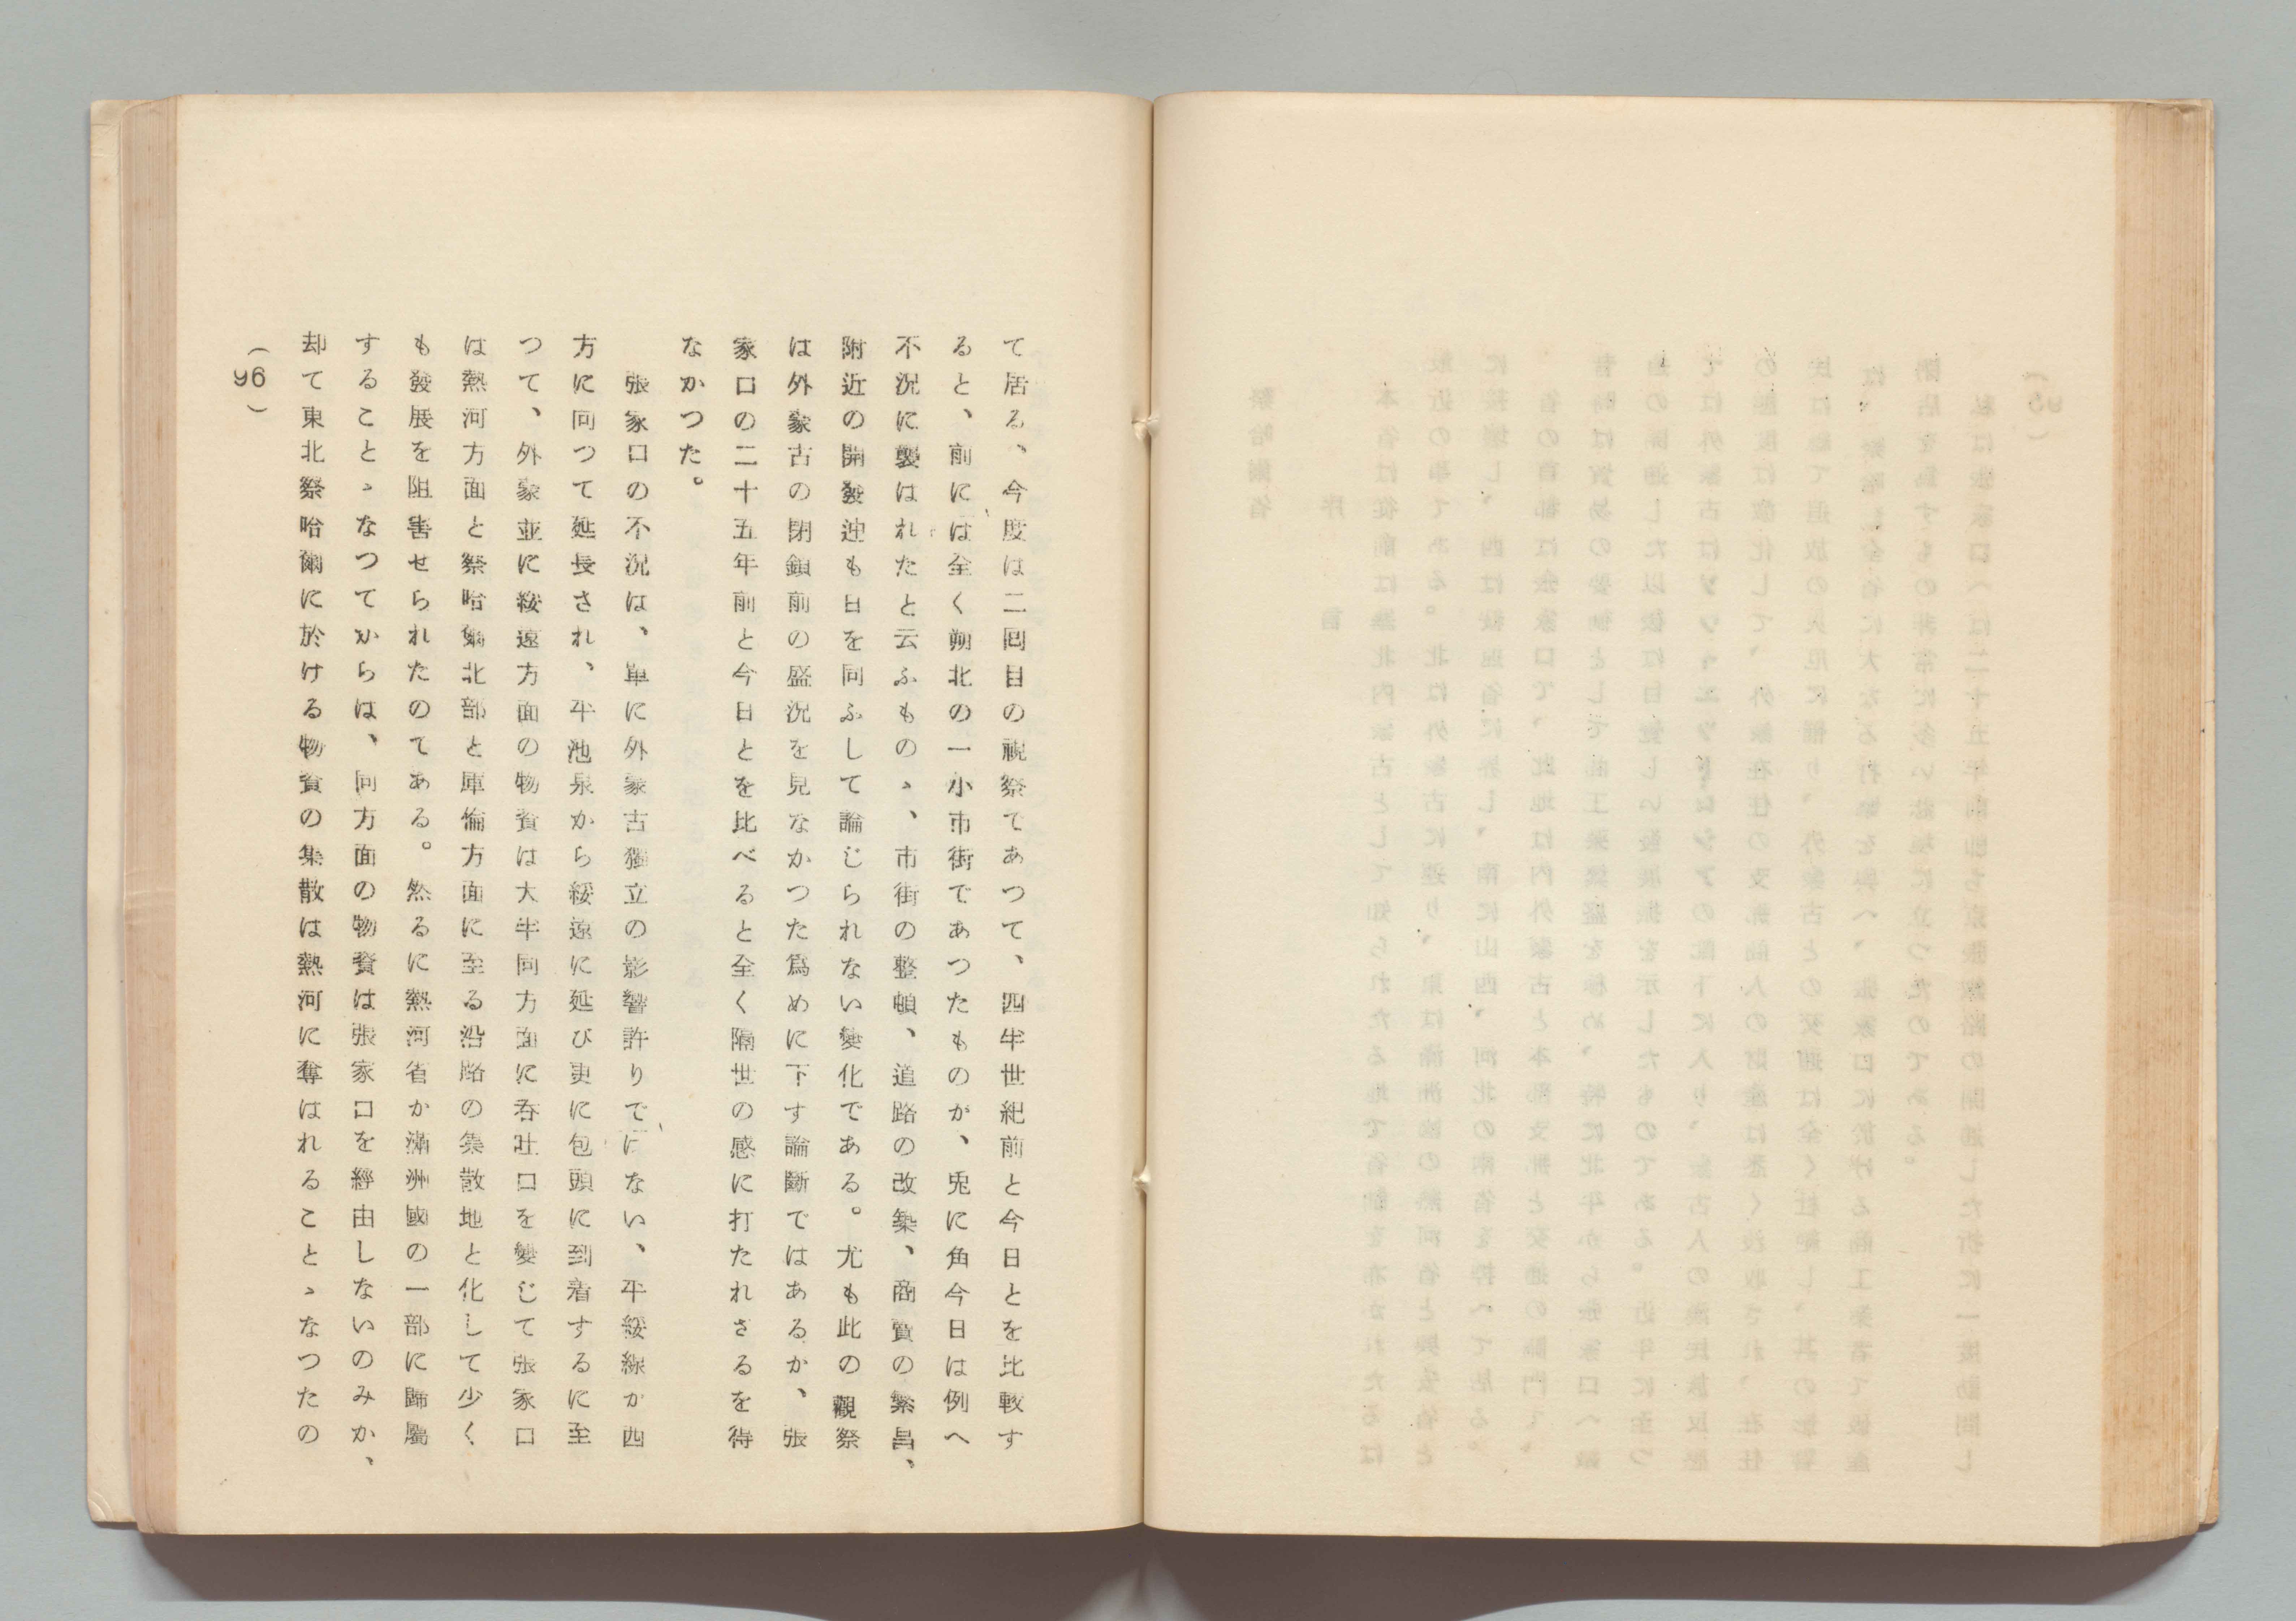 て居る、今度は二囘目の視察てあつて、四半世紀前と今日とを比較す
ると、前には全く朔北の一小市街であつたものが、兎に角今日は例へ
不況に襲はれたと云ふものゝ、市街の整頓、道路の改築、商賣の繁昌、
附近の開發迚も日を同ふして論じられない變化である。尤も此の觀察
は外蒙古の閉鎖前の盛況を見なかつた爲めに下す論斷ではあるか、張
家口の二十五年前と今日とを比べると全く隔世の感に打たれさるを得
なかつた。
張家口の不況は、單に外蒙古獨立の影響許りではない、平綏線か西
方に向つて延長され、平池泉から綏遠に延び更に包頭に到着するに至
つて、外蒙並に綏遠方面の物資は大半同方面に呑吐口を變じて張家口
は熱河方面と察哈爾北部と庫倫方面に至る沿路の集散地と化して少く
も發展を阻害せられたのてある。然るに熱河省か滿洲國の一部に歸屬
することゝなつてからは、同方面の物資は張家口を經由しないのみか、
却て東北察哈爾に於ける物資の集散は熱河に奪はれることゝなつたの
(96)